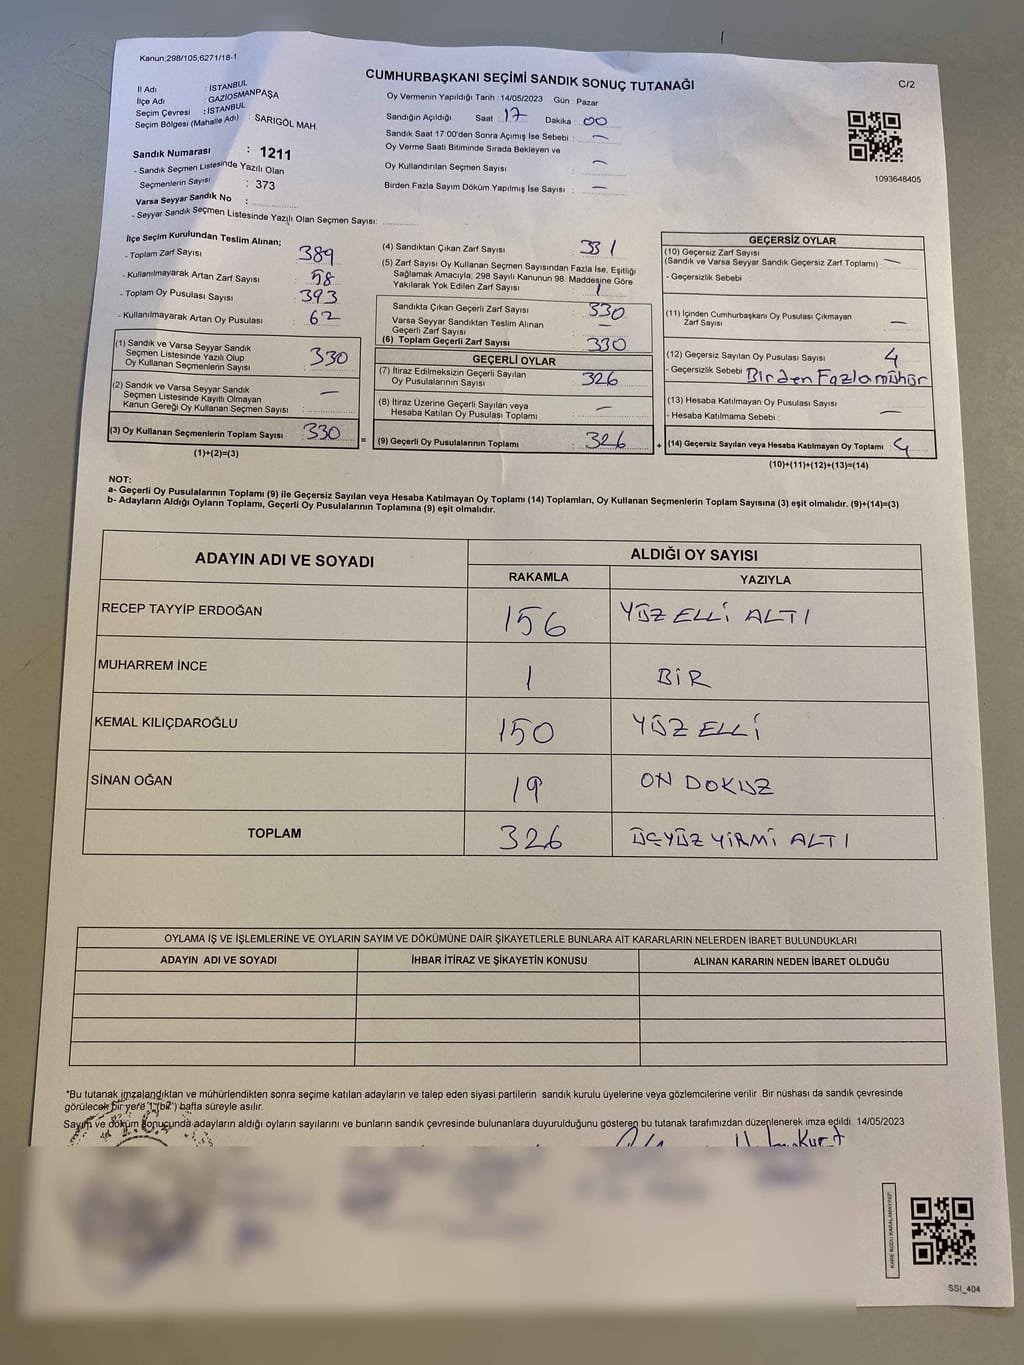 Kanun;298/105;6271/18-1
CUMHURBAŞKANI SEÇİMİ SANDIK SONUÇ TUTANAĞI
C/2
İl Adı : İSTANBUL
İlçe Adı : GAZİOSMANPAŞA
Seçim Çevresi : İSTANBUL
Seçim Bölgesi (Mahalle Adı) : SARIGÖL MAH.
Sandık Numarası : 1211
- Sandık Seçmen Listesinde Yazılı Olan
Seçmenlerin Sayısı : 373
Varsa Seyyar Sandık No :
- Seyyar Sandık Seçmen Listesinde Yazılı Olan Seçmen Sayısı:
Oy Vermenin Yapıldığı Tarih : 14/05/2023 Gün : Pazar
Sandığın Açıldığı Saat 17 Dakika 00
Sandık Saat 17:00'den Sonra Açımış İse Sebebi : —
Oy Verme Saati Bitiminde Sırada Bekleyen ve
Oy Kullandırılan Seçmen Sayısı : —
Birden Fazla Sayım Döküm Yapılmış İse Sayısı : —
1093648405
İlçe Seçim Kurulundan Teslim Alınan;
- Toplam Zarf Sayısı : 389
- Kullanılmayarak Artan Zarf Sayısı : 58
- Toplam Oy Pusulası Sayısı : 393
- Kullanılmayarak Artan Oy Pusulası : 62
(1) Sandık ve Varsa Seyyar Sandık
Seçmen Listesinde Yazılı Olup
Oy Kullanan Seçmenlerin Sayısı : 330
(2) Sandık ve Varsa Seyyar Sandık
Seçmen Listesinde Kayıtlı Olmayan
Kanun Gereği Oy Kullanan Seçmen Sayısı : —
(3) Oy Kullanan Seçmenlerin Toplam Sayısı : 330
(1)+(2)=(3)
=
(4) Sandıktan Çıkan Zarf Sayısı : 331
(5) Zarf Sayısı Oy Kullanan Seçmen Sayısından Fazla İse, Eşitliği
Sağlamak Amacıyla; 298 Sayılı Kanunun 98. Maddesine Göre
Yakılarak Yok Edilen Zarf Sayısı : 1
Sandıkta Çıkan Geçerli Zarf Sayısı : 330
Varsa Seyyar Sandıktan Teslim Alınan
Geçerli Zarf Sayısı : —
(6) Toplam Geçerli Zarf Sayısı : 330
GEÇERLİ OYLAR
(7) İtiraz Edilmeksizin Geçerli Sayılan
Oy Pusulalarının Sayısı : 326
(8) İtiraz Üzerine Geçerli Sayılan veya
Hesaba Katılan Oy Pusulası Toplamı : —
(9) Geçerli Oy Pusulalarının Toplamı : 326
+
GEÇERSİZ OYLAR
(10) Geçersiz Zarf Sayısı
(Sandık ve Varsa Seyyar Sandık Geçersiz Zarf Toplamı) : —
- Geçersizlik Sebebi :
(11) İçinden Cumhurbaşkanı Oy Pusulası Çıkmayan
Zarf Sayısı : —
(12) Geçersiz Sayılan Oy Pusulası Sayısı : 4
- Geçersizlik Sebebi : Birden Fazla mühür
(13) Hesaba Katılmayan Oy Pusulası Sayısı : —
- Hesaba Katılmama Sebebi :
(14) Geçersiz Sayılan veya Hesaba Katılmayan Oy Toplamı : 4
(10)+(11)+(12)+(13)=(14)
NOT:
a- Geçerli Oy Pusulalarının Toplamı (9) ile Geçersiz Sayılan veya Hesaba Katılmayan Oy Toplamı (14) Toplamları, Oy Kullanan Seçmenlerin Toplam Sayısına (3) eşit olmalıdır. (9)+(14)=(3)
b- Adayların Aldığı Oyların Toplamı, Geçerli Oy Pusulalarının Toplamına (9) eşit olmalıdır.
ADAYIN ADI VE SOYADI ALDIĞI OY SAYISI
RAKAMLA YAZIYLA
RECEP TAYYİP ERDOĞAN 156 YÜZ ELLİ ALTI
MUHARREM İNCE 1 BİR
KEMAL KILIÇDAROĞLU 150 YÜZ ELLİ
SİNAN OĞAN 19 ON DOKUZ
TOPLAM 326 ÜÇYÜZ YİRMİ ALTI
OYLAMA İŞ VE İŞLEMLERİNE VE OYLARIN SAYIM VE DÖKÜMÜNE DAİR ŞİKAYETLERLE BUNLARA AİT KARARLARIN NELERDEN İBARET BULUNDUKLARI
ADAYIN ADI VE SOYADI İHBAR İTİRAZ VE ŞİKAYETİN KONUSU ALINAN KARARIN NEDEN İBARET OLDUĞU
"Bu tutanak imzalandıktan ve mühürlendikten sonra seçime katılan adayların ve talep eden siyasi partilerin sandık kurulu üyelerine veya gözlemcilerine verilir. Bir nüshası da sandık çevresinde
görülecek bir yere 1 hafta süreyle asılır.
Sayım ve döküm sonucunda adayların aldığı oyların sayılarını ve bunların sandık çevresinde bulunanlara duyurulduğunu gösteren bu tutanak tarafımızdan düzenlenerek imza edildi. 14/05/2023
KARE KODU KARALAMAYINIZ!
SSI_404